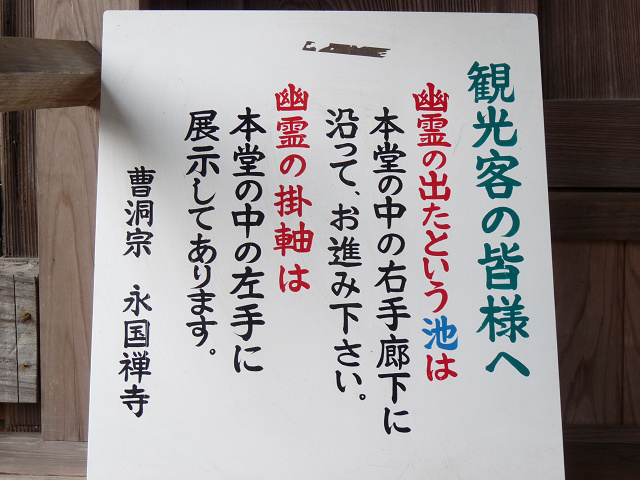 観光客の皆様へ
幽霊の出たという池は
本堂の中の右手廊下に
沿って、お進み下さい。
幽霊の掛軸は
本堂の中の左手に
展示してあります。
曹洞宗　永国禅寺